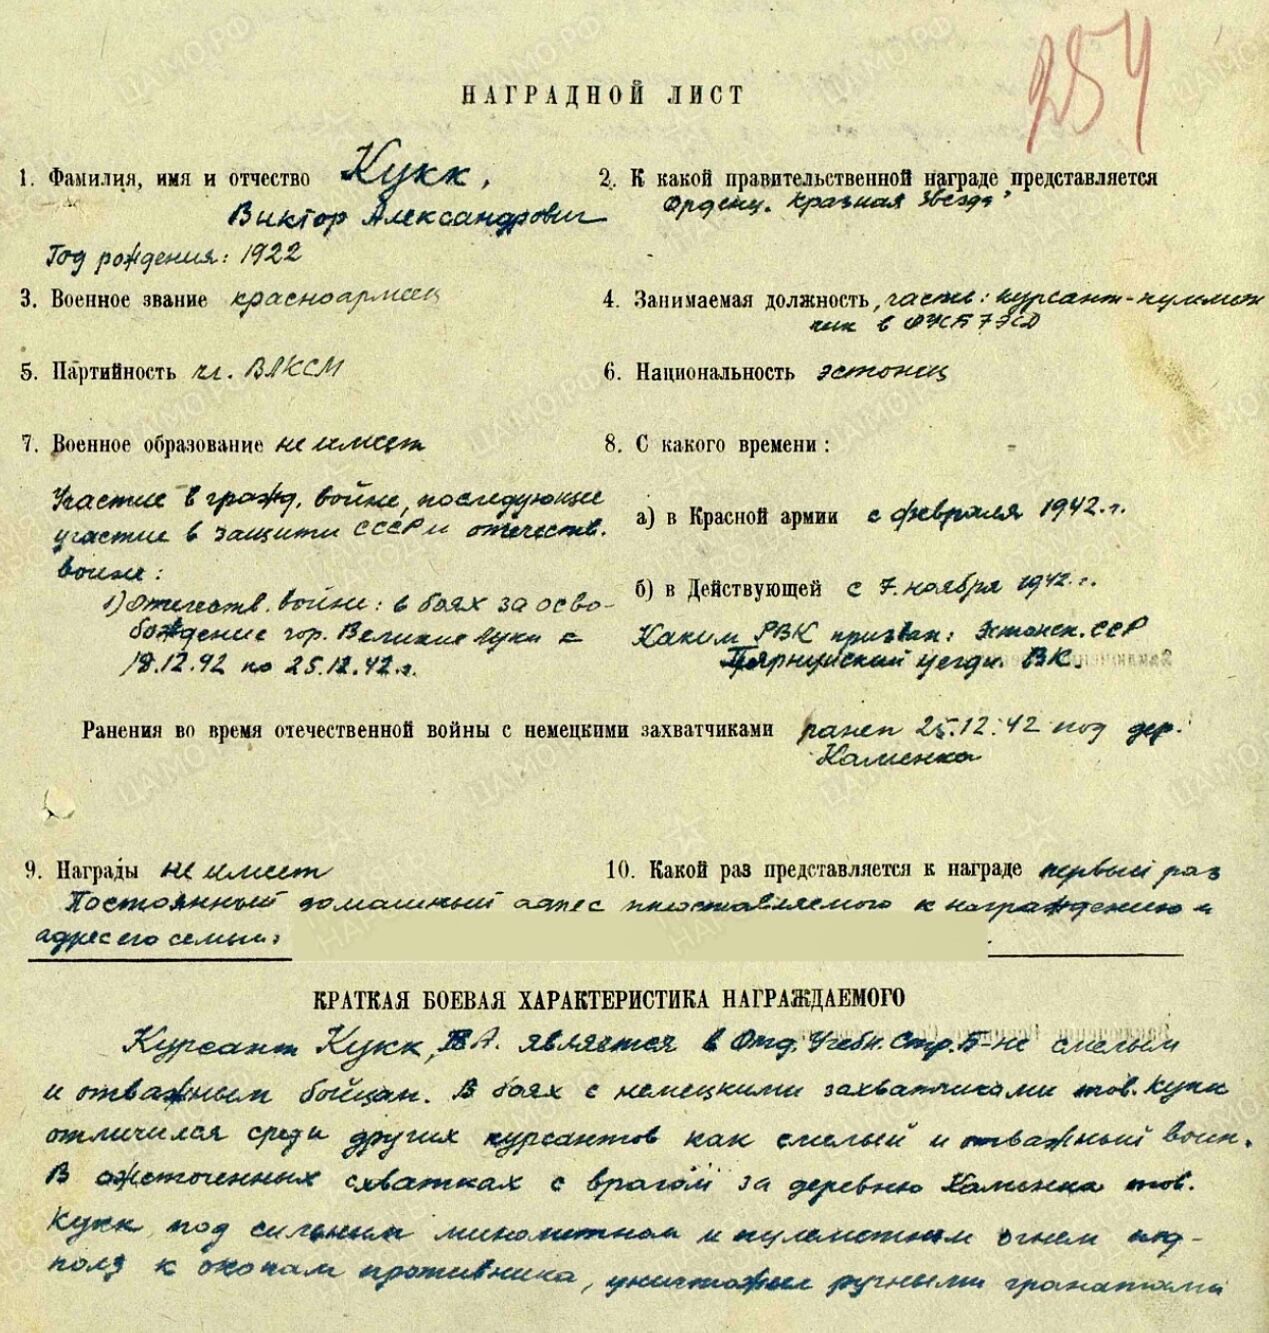 254
НАГРАДНОЙ ЛИСТ
1. Фамилия, имя и отчество Кукк,
Виктор Александрович
Год рождения: 1922
2. К какой правительственной награде представляется
Ордену "Красная Звезда"
3. Военное звание красноармеец
4. Занимаемая должность, часть: курсант-пулемет
чик в ОУСБ 7 ЭСД
5. Партийность чл. ВЛКСМ
6. Национальность эстонец
7. Военное образование не имеет
8. С какого времени:
Участие в гражд. войне, последующие
участие в защити СССР и отечеств.
войне:
а) в Красной армии с февраля 1942.г.
б) в Действующей с 7. ноября 1942.г.
1) Отечеств. войне: в боях за осво-
бождение гор. Великие Луки с
18.12.42 по 25.12.42.г.
Каким РВК призван: Эстонск. ССР
Пярнуский уездн. ВК.
Ранения во время отечественной войны с немецкими захватчиками ранен 25.12.42 под дер.
Каменка
9. Награды не имеет
10. Какой раз представляется к награде первый раз
Постоянный домашный адрес представляемого к награждению и
адрес его семьи:
КРАТКАЯ БОЕВАЯ ХАРАКТЕРИСТИКА НАГРАЖДАЕМОГО
Курсант Кукк, В.А. является в Отд. Учебн. Стр. Б-не смелым
и отважным бойцам. В боях с немецкими захватчиками тов. Кукк
отличился среди других курсантов как смелый и отважный воин.
В ожесточенных схватках с врагом за деревню Каменка тов.
Кукк под сильным минометным и пулеметным огнем под-
полз к окопам противника, уничтожил ручными гранатами